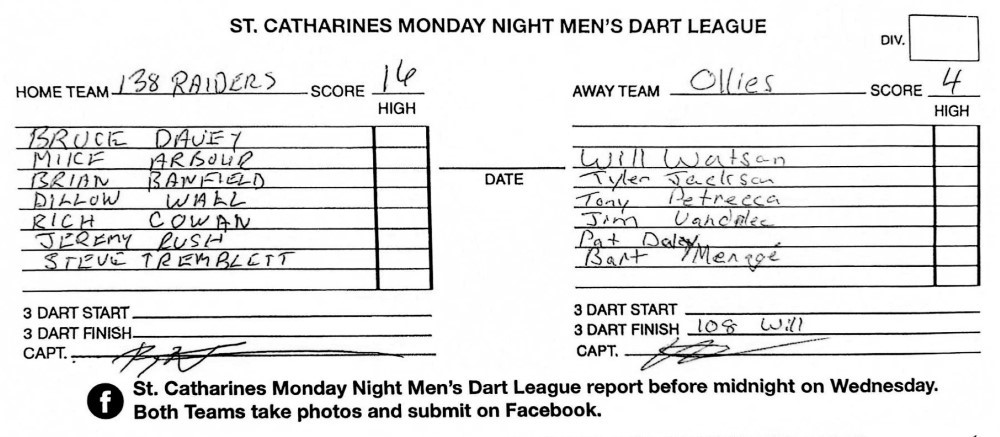 ST. CATHARINES MONDAY NIGHT MEN'S DART LEAGUE
DIV.
HOME TEAM 138 RAIDERS SCORE 16
HIGH
AWAY TEAM Ollies SCORE 4
HIGH
BRUCE DAVEY
MIKE ARBOUR
BRIAN BANFIELD
DILLOW WALL
RICH COWAN
JEREMY RUSH
STEVE TREMBLETT
DATE
Will Watson
Tyler Jackson
Tony Petrecca
Jim
Pat Daley
Bart
3 DART START
3 DART FINISH
CAPT.
3 DART START
3 DART FINISH 108 Will
CAPT.
St. Catharines Monday Night Men's Dart League report before midnight on Wednesday.
Both Teams take photos and submit on Facebook.